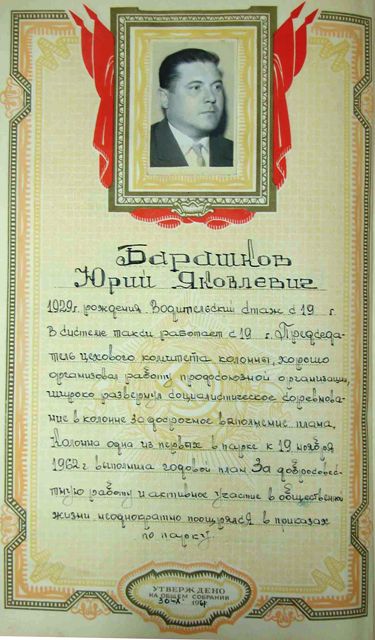 Барашков
Юрий Яковлевич
1929г. рождения. Водительский стаж с 19 г.
В системе такси работает с 19 г. Председа-
тель цехового комитета колонны, хорошо
организовал работу профсоюзной организации,
широко развернул социалистическое соревнова-
ние в колонне за досрочное выполнение плана.
Колонна одна из первых в парке к 19 ноября
1962 г. выполнила годовой план. За добросовес-
тную работу и активное участие в общественной
жизни неоднократно поощрялся в приказах
по парку.
УТВЕРЖДЕНО
НА ОБЩЕМ СОБРАНИИ
196